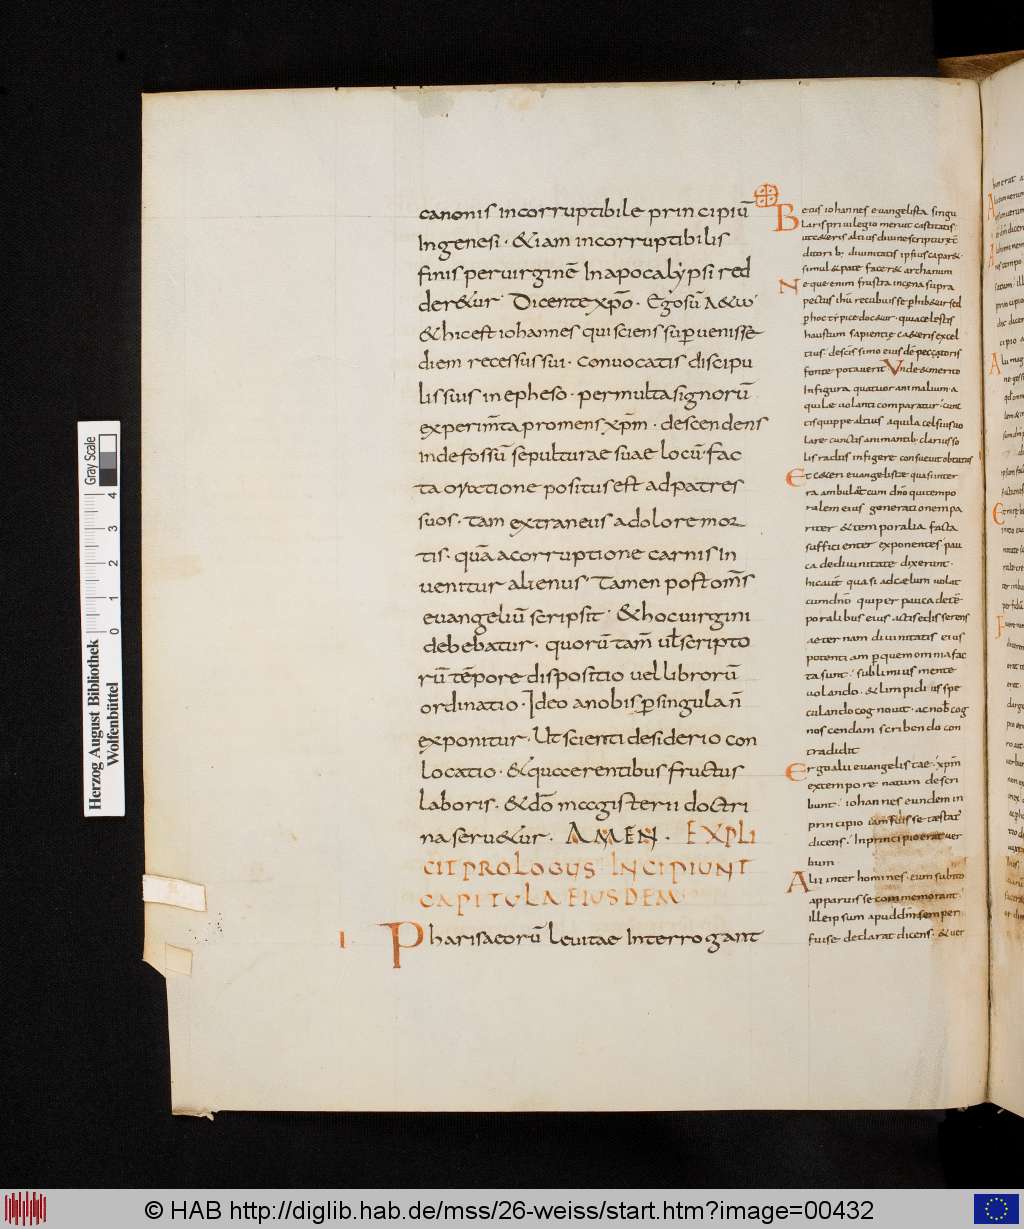 canonis incorruptibile principiū
In genesi · &iam incorruptibilis
finis per uirginē In apocalypsi red
der&ur Dicente xp̄o · Ego sū A & ω
& hic est iohannes qui sciens sup̄uenisse
diem recessus sui · conuocatis discipu
lis suis in epheso · per multa signorū
experim̄ta promens xp̄m · descendens
in defossū sepulturae suae locū · fac
ta oratione positus est ad patres
suos · tam extraneus a dolore mor
tis · quā a corruptione carnis in
uenitur alienus Tamen post om̄s
euangeliū scripsit · & hoc uirgini
debebatur · quorū tam̄ ul̄ scripto
rū tēpore dispositio uel librorū
ordinatio · Ideo a nobis p̄ singula n̄
exponitur · Ut scienti desiderio con
locatio · & quaerentibus fructus
laboris · & dō magisterii doctri
na seru&ur · AMEN · EXPLI
CIT PROLOGUS INCIPIUNT
CAPITULA EIUSDEM
I Pharisaeorū leuitae Interrogant
Betus iohannes euangelista singu
laris priuilegio meruit castitatis
ditori b; diuinitatis ipsius capar&·
simul & pate facer& archanum
Neque enim frustra in cena supra
pectus ihū recubuisse p̄hib&ur sed
haustum sapientię ca&eris excel
fonte potauerit Unde & merito
In figura quatuor animalium · a
quilę uolanti comparatur · cunc
tis quippe altius aquila celsius uo
lare cunctis animantib; clarius so
lis radiis infigere consueuit obtutus
Et c&eri euangelistae quasi in ter
ra ambulāt cum dn̄o qui tempo
ralem eius generationem pa
riter & temporalia facta
sufficienter exponentes pau
ca de diuinitate dixerunt ·
hic aūt quasi ad caelum uolat
cum dn̄o qui per pauca de tē
poralibus eius
aeternam diuinitatis eius
potentiam p̄ quem omnia fac
ta sunt · sublimius mente
uolando · & limpidius spe
culando cognouit · ac nob̄ cog
noscendam scribendo con
tradidit
Ergo alii euangelistae · xp̄m
ex tempore natum descri
bunt · iohannes eundem in
principio iam fuisse testat̄
dicens · In principio erat uer
bum
Alii inter homines · eum subito
apparuisse commemorant
ille ipsum apud dm̄ semper
fuisse declarat dicens · & uer
Herzog August Bibliothek
Wolfenbüttel
0 1 2 3 4
Gray Scale
© HAB http://diglib.hab.de/mss/26-weiss/start.htm?image=00432